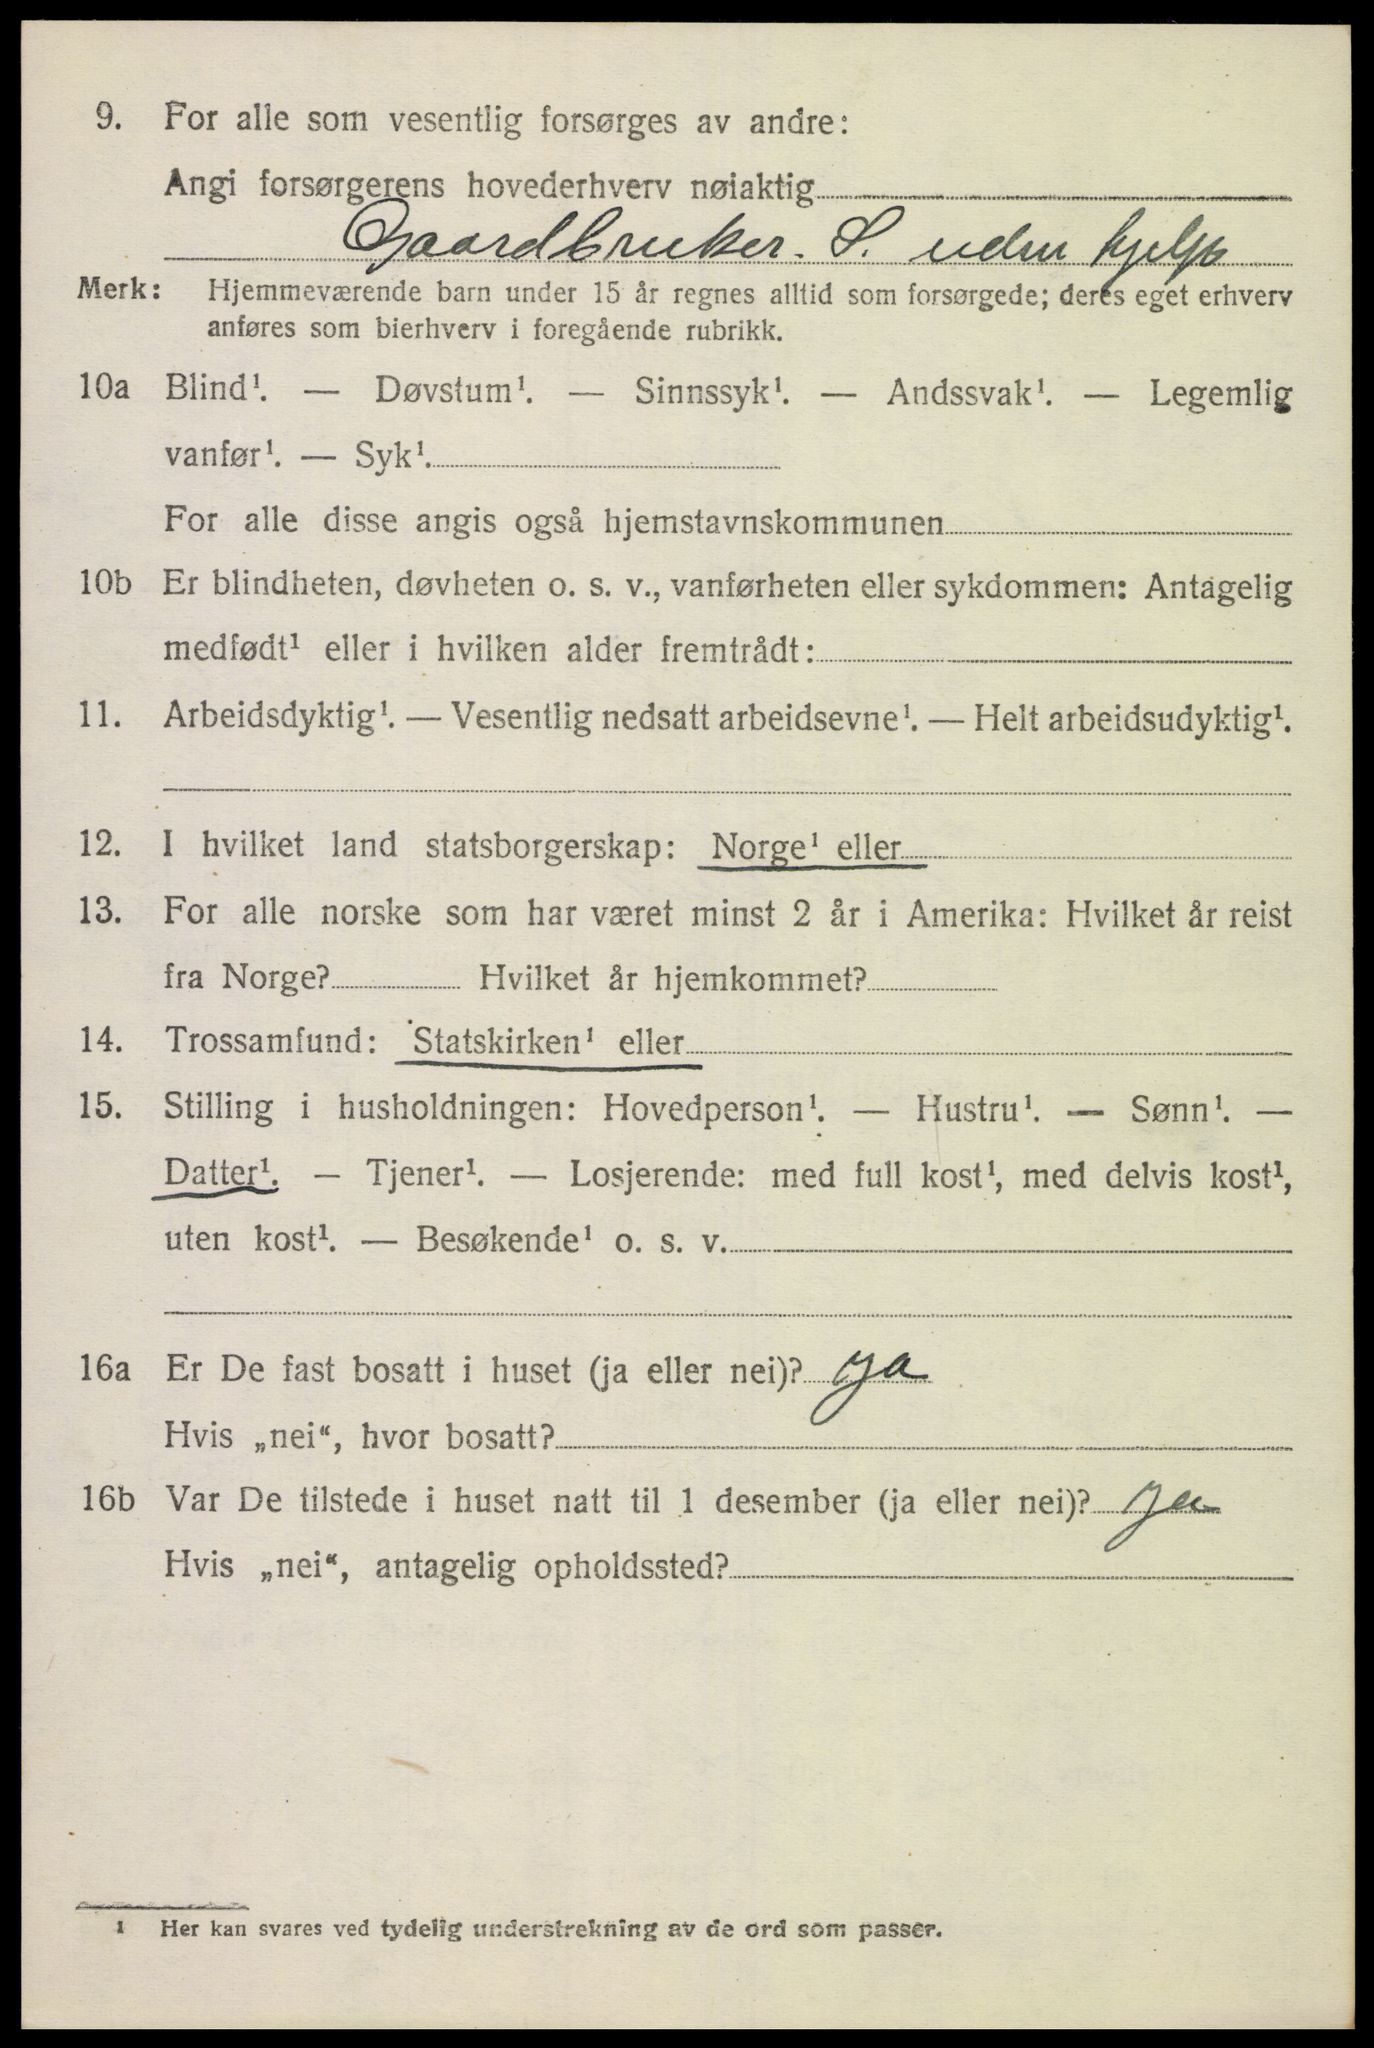 9. For alle som vesentlig forsørges av andre:
Angi forsørgerens hovederhverv nøiaktig
Gaardbruker. S. uden hjelp
Merk: Hjemmeværende barn under 15 år regnes alltid som forsørgede; deres eget erhverv
anføres som bierhverv i foregående rubrikk.
10a Blind¹. — Døvstum¹. — Sinnssyk¹. — Andssvak¹. — Legemlig
vanfør¹. — Syk¹.
For alle disse angis også hjemstavnskommunen
10b Er blindheten, døvheten o. s. v., vanførheten eller sykdommen: Antagelig
medfødt¹ eller i hvilken alder fremtrådt:
11. Arbeidsdyktig¹. — Vesentlig nedsatt arbeidsevne¹. — Helt arbeidsudyktig¹.
12. I hvilket land statsborgerskap: Norge¹ eller
13. For alle norske som har været minst 2 år i Amerika: Hvilket år reist
fra Norge? Hvilket år hjemkommet?
14. Trossamfund: Statskirken¹ eller
15. Stilling i husholdningen: Hovedperson¹. — Hustru¹. — Sønn¹. —
Datter¹. — Tjener¹. — Losjerende: med full kost¹, med delvis kost¹,
uten kost¹. — Besøkende¹ o. s. v.
16a Er De fast bosatt i huset (ja eller nei)? ja
Hvis „nei“, hvor bosatt?
16b Var De tilstede i huset natt til 1 desember (ja eller nei)? ja
Hvis „nei“, antagelig opholdssted?
1 Her kan svares ved tydelig understrekning av de ord som passer.